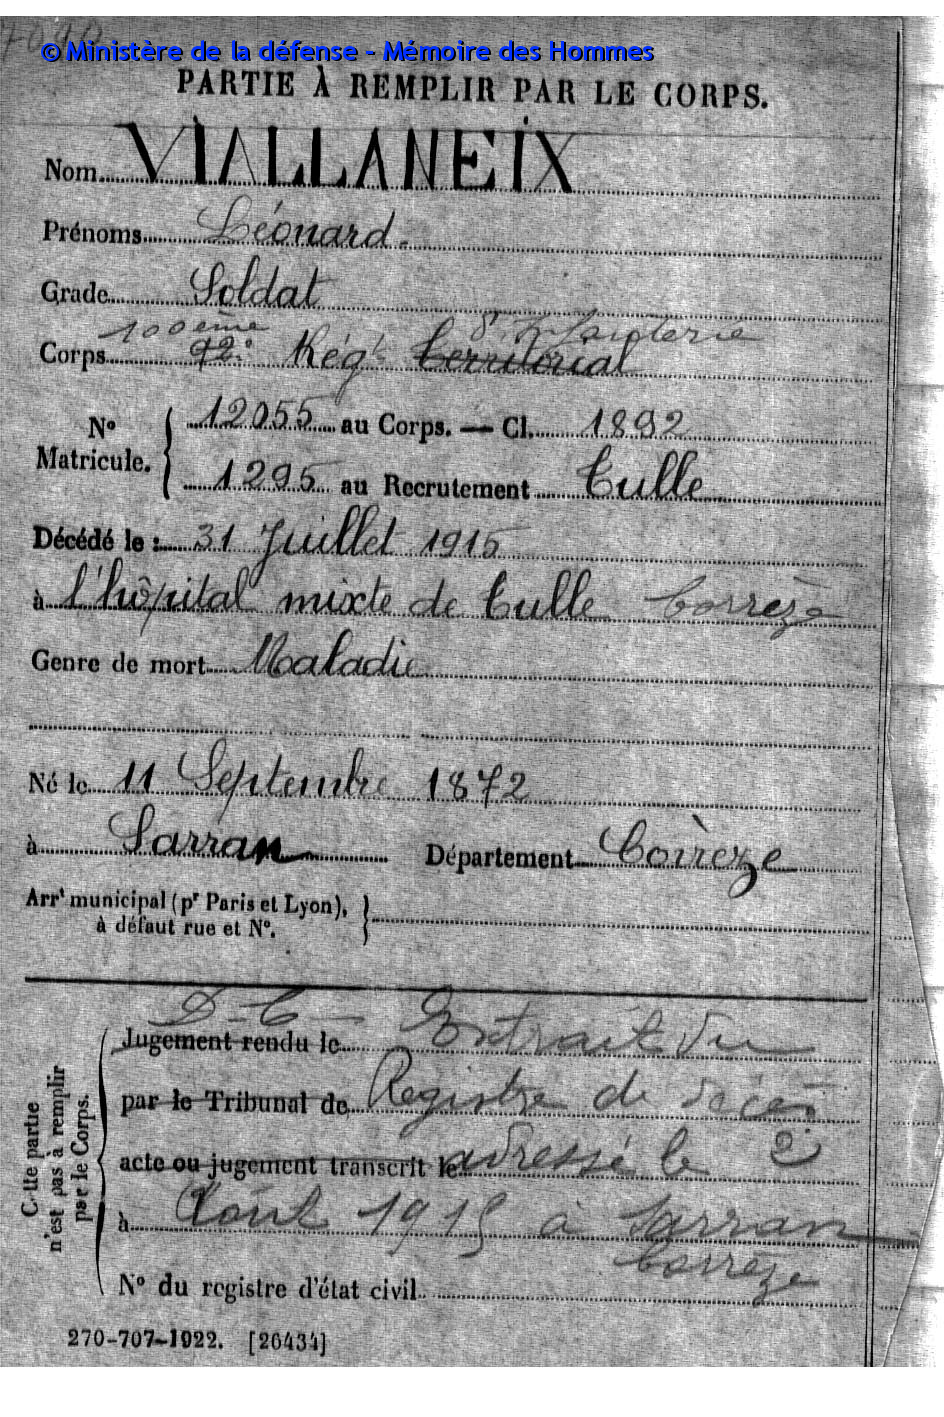 7040
© Ministère de la défense - Mémoire des Hommes
PARTIE À REMPLIR PAR LE CORPS.
Nom VIALLANEIX
Prénoms Léonard.
Grade Soldat
100ème d'Infanterie
Corps 92e Régt Territorial
No Matricule. { 12055 au Corps. — Cl. 1892
1295 au Recrutement Tulle
Décédé le : 31 Juillet 1915
à l'hôpital mixte de Tulle Corrèze
Genre de mort Maladie
Né le 11 Septembre 1872
à Sarran Département Corrèze
Arrt municipal (pr Paris et Lyon), }
à défaut rue et No.
D-C- Extrait du
Jugement rendu le
par le Tribunal de Registre de décès
acte ou jugement transcrit le adressé le 2
à Août 1915 à Sarran
Corrèze
No du registre d'état civil
Cette partie n'est pas à remplir par le Corps.
270-707-1922. [26434]